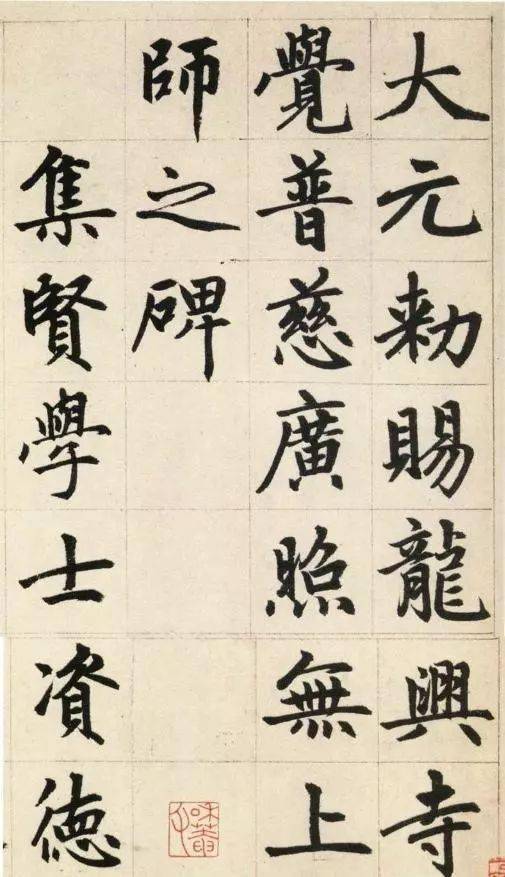 大元敕賜龍興寺
覺普慈廣照無上
師之碑
集賢學士資德